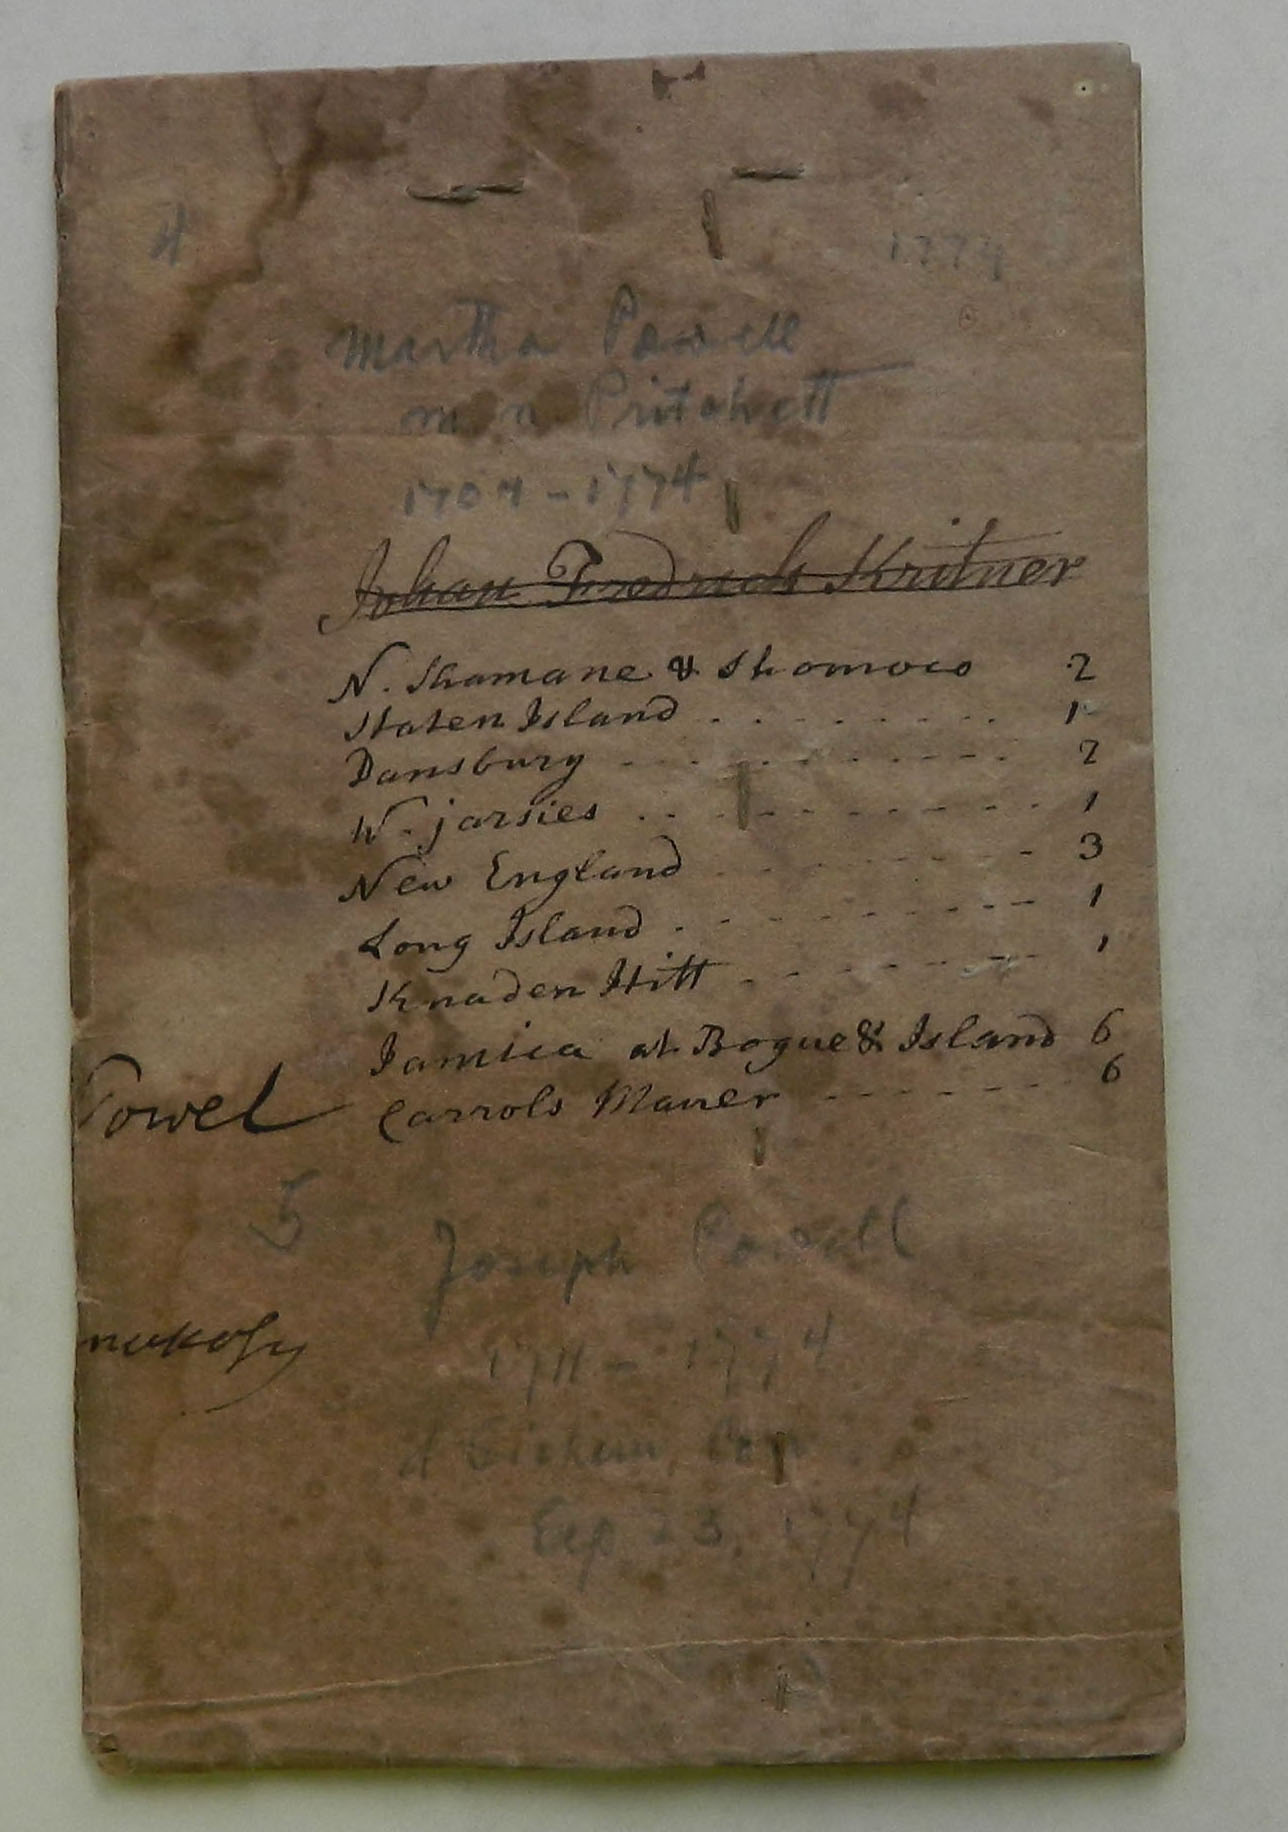 4
1774
Martha Powell
m. n. Pritchett
1704 - 1774
Johan Fredrich Kritner
N. Shamane & Shomoco 2
Staten Island . . . . . . . . 1
Dansbury - - - - - - - - 2
W. jarsies . . - - - - - - - 1
New England - - - - - - - 3
Long Island . - - - - - - - 1
Knaden Hitt - - - - - - - 1
Jamica at Bogue & Island 6
Carrols Maner - - - - - - 6
Powel
5
Joseph Powell
1711 - 1774
Sep 23, 1774